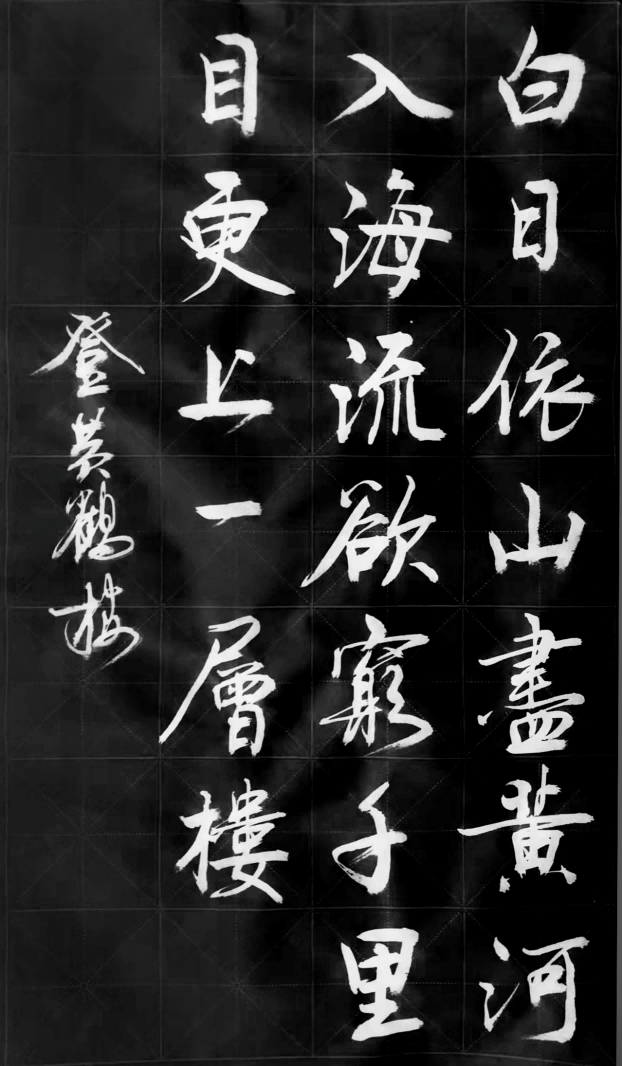 白日依山盡黃河
入海流欲窮千里
目更上一層樓
登黃鶴楼